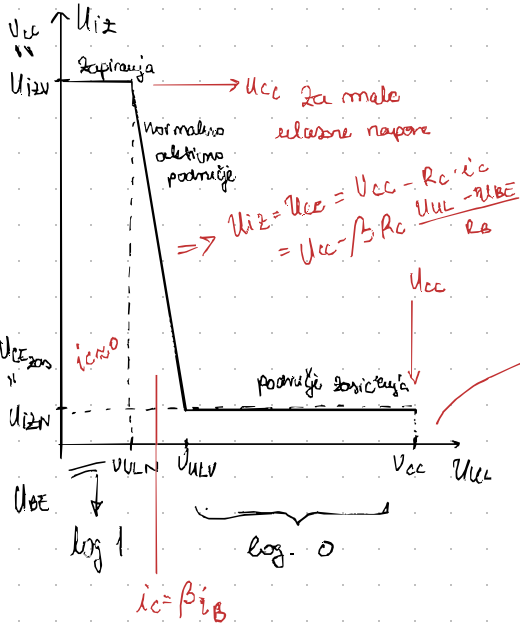 Vcc
"
UiZ
Zapiranja
UiZV
→ Ucc za male
ulazne napone
normalno
aktivno
područje
=> UiZ = UCE = Vcc - Rc · ic
= Ucc - β Rc (UUL - UBE) / RB
Ucc
ic≈0
UCEzas
"
područje zasićenja
UiZN
VULN
VULV
Vcc
UUL
UBE
log 1
log. 0
ic = β iB